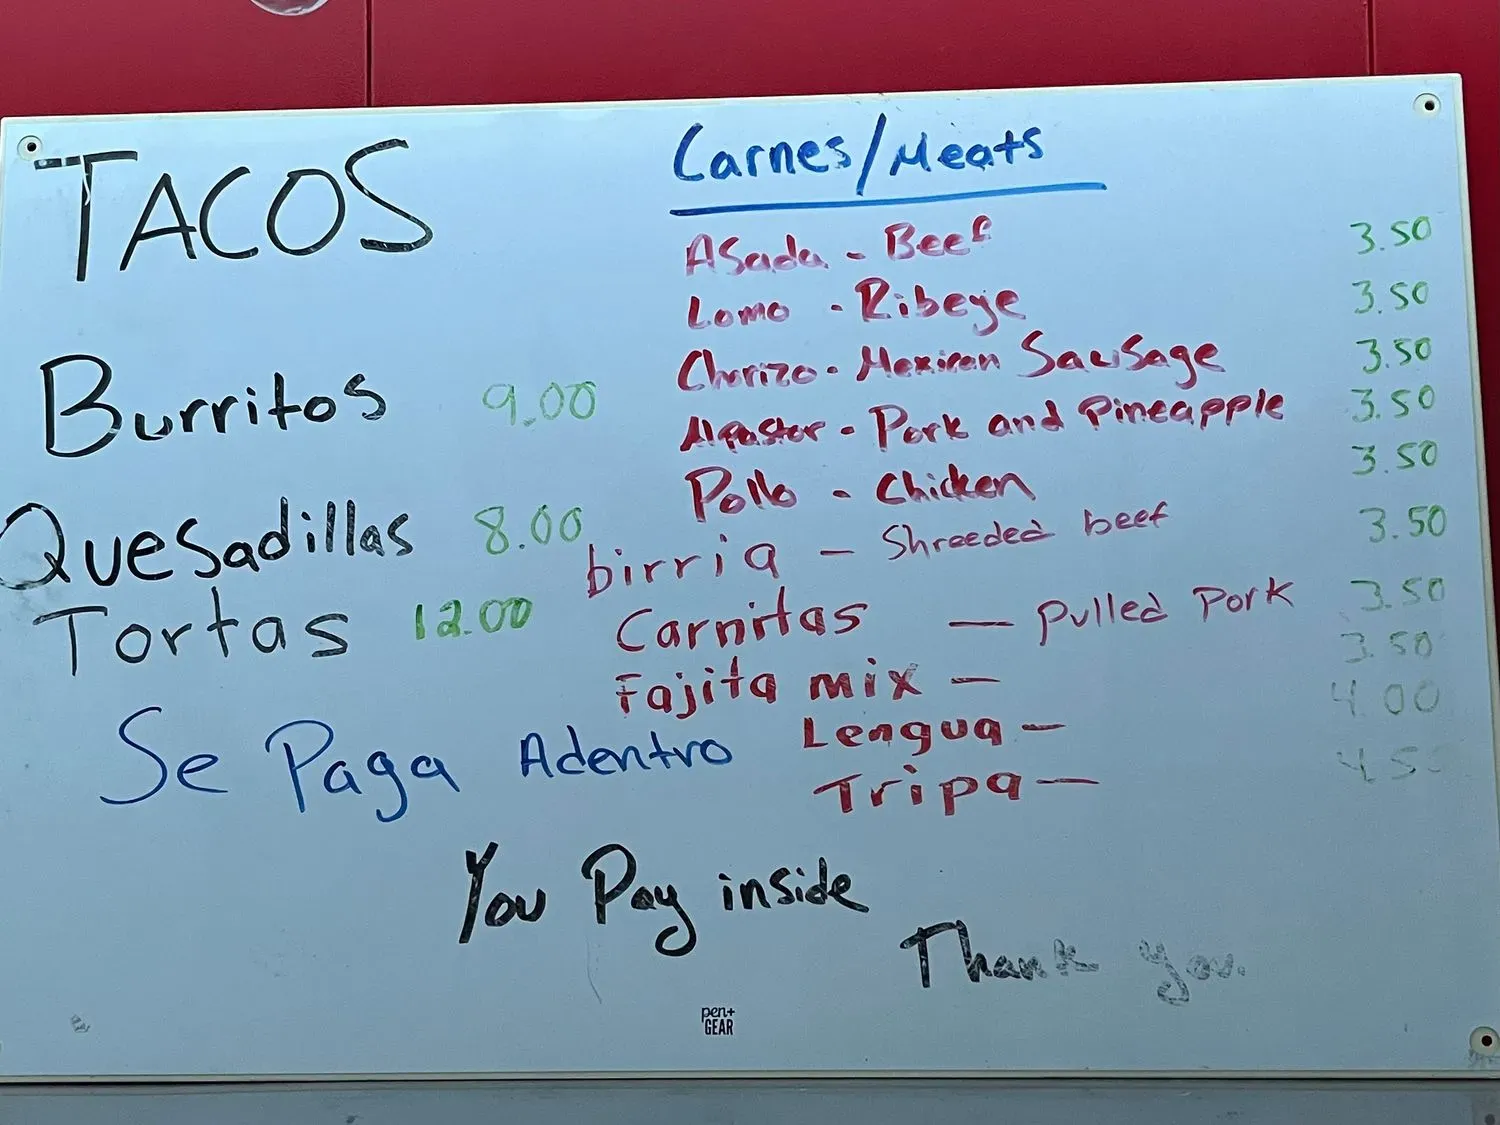 TACOS
Burritos 9.00
Quesadillas 8.00
Tortas 12.00
Se Paga Adentro
Carnes/Meats
Asada - Beef 3.50
Lomo - Ribeye 3.50
Chorizo - Mexican Sausage 3.50
Alpastor - Pork and Pineapple 3.50
Pollo - Chicken 3.50
birria - Shreeded beef 3.50
Carnitas - Pulled Pork 3.50
Fajita mix - 3.50
Lengua - 4.00
Tripa - 4.50
You Pay inside
Thank you.
pen+
GEAR